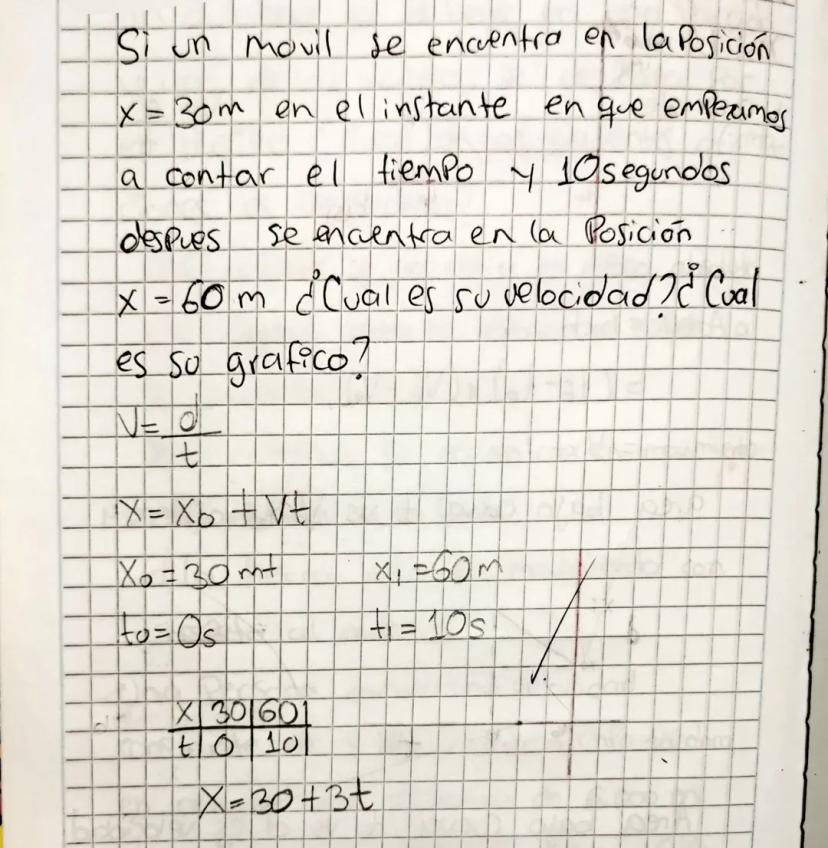 Si un movil se encuentra en la Posición
x = 30m en el instante en que empezamos
a contar el tiempo y 10 segundos
despues se encuentra en la Posición
x = 60 m ¿Cual es su velocidad? ¿Cual
es su grafico?
V = d/t
x = x₀ + Vt
x₀ = 30 mt x₁ = 60m
t₀ = 0s t₁ = 10s
x | 30 | 60 |
t | 0 | 10 |
X = 30 + 3t